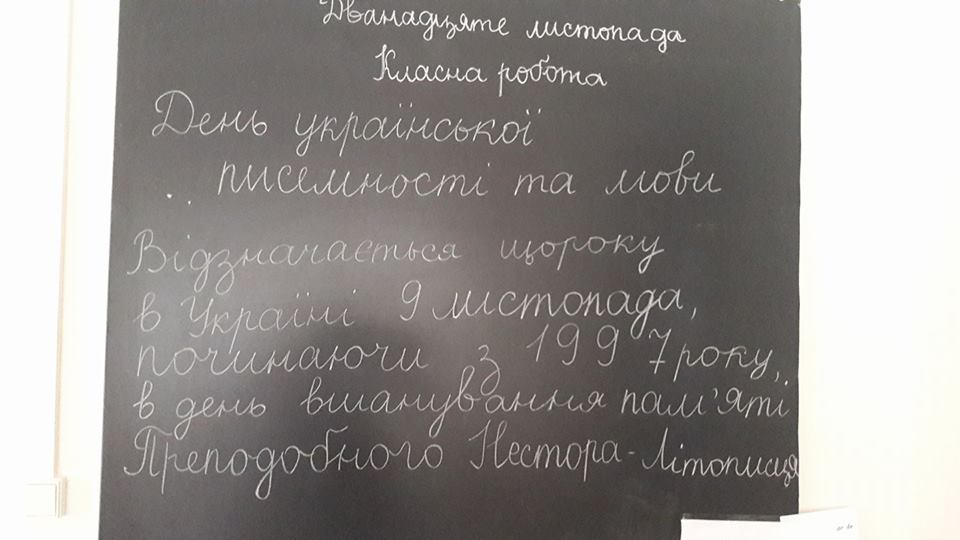 Дванадцяте листопада
Класна робота
День української
писемності та мови
Відзначається щороку
в Україні 9 листопада,
починаючи з 1997 року,
в день вшанування пам'яті
Преподобного Нестора-Літописця